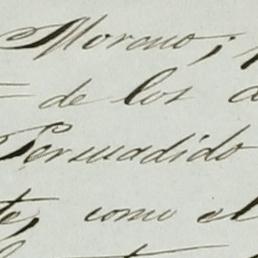 Moreno;
= de los
Persuadido
te, como el